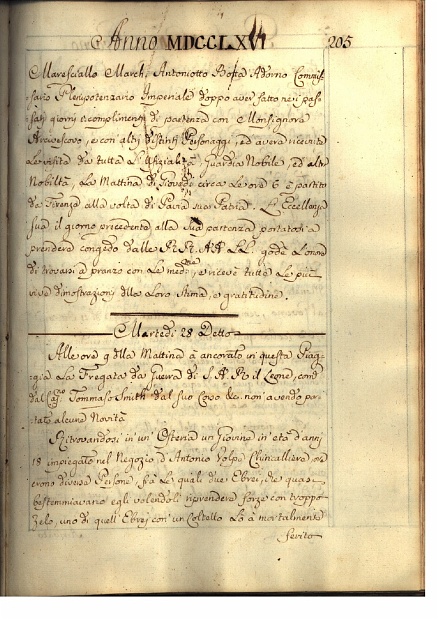 Anno MDCCLXVI 205
Maresciallo March. Antoniotto Botta Adorno Commis-
sario Plenipotenziario Imperiale doppo aver fatto ne i pas-
sati giorni i complimenti di partenza con Monsignore
Arcivescovo, e con altri distinti Personaggi, ed avere ricevute
le visite da tutta l'Ufizialità, Guardia Nobile, ed altra
Nobiltà, la Mattina di Giovedì circa le ore 6 è partito
da Firenze alla volta di Pavia sua Patria. L'Eccellenza
sua il giorno precedente alla sua partenza portatasi a
prendere congedo dalle RR. AA. LL. godè l'onore
di trovarsi a pranzo con le med.me, e ricevè tutte le più
vive dimostrazioni della loro stima, e gratitudine.
Martedì 28 Detto
Alle ore 9 della Mattina à ancorato in questa Piag-
gia la Fregata da Guerra di S. A. R. il Leone, com.
dal Cap.o Tommaso Smith dal suo Corso &c. non avendo por-
tato alcuna Novità
Ritrovandosi in un' Osteria un Giovine in età d'anni
18 impiegato nel Negozio d'Antonio Volpi Chincagliere, ove
erono diverse Persone, frà le quali due Ebrei, che quasi
bestemmiavano egli volendoli riprendere forze con troppo
zelo, uno di quelli Ebrei con un Coltello lo à mortalmente
ferito